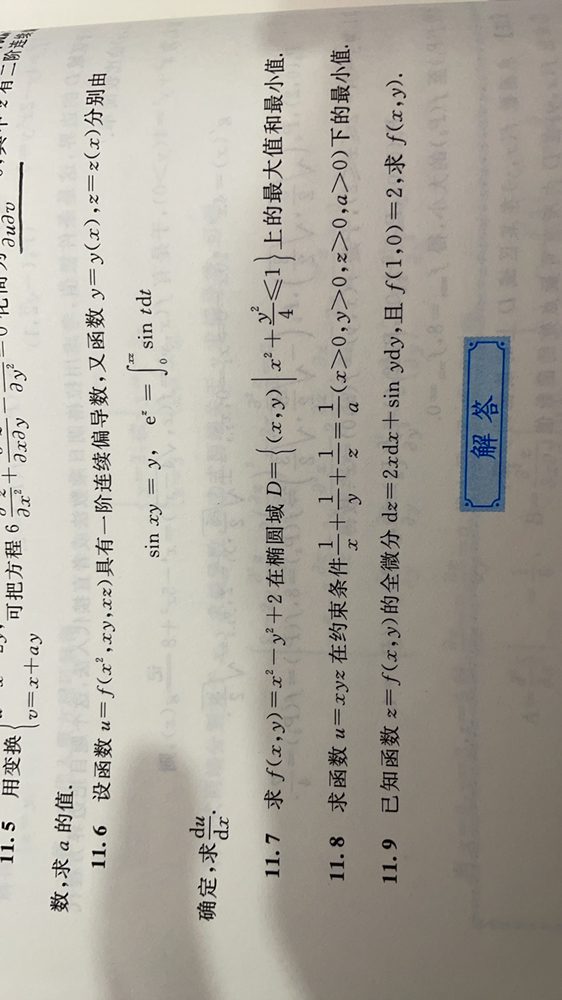 11.5 用变换
v=x+ay
可把方程 6
数,求 a 的值.
11.6 设函数 u=f(x²,xy,xz)具有一阶连续偏导数,又函数 y=y(x),z=z(x)分别由
sin xy = y, e^z = ∫_0^{xz} sin tdt
确定,求 du/dx.
11.7 求 f(x,y)=x²-y²+2 在椭圆域 D={(x,y)|x²+y²/4≤1}上的最大值和最小值.
11.8 求函数 u=xyz 在约束条件 1/x+1/y+1/z=1/a(x>0,y>0,z>0,a>0)下的最小值.
11.9 已知函数 z=f(x,y)的全微分 dz=2xdx+sin ydy,且 f(1,0)=2,求 f(x,y).
解答